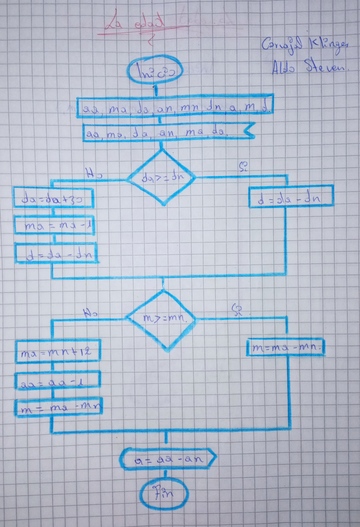 La edad
Conojal Klinger
Aldo Steven.
Inicio
aa, ma, da, an, mn, dn, a, m, d
aa, ma, da, an, ma, da.
da>=dn
No
Si
da=da+30
ma=ma-1
d=da-dn
d=da-dn
m>=mn
No
Si
ma=mn+12
aa=aa-1
m=ma-mn
m=ma-mn
a=aa-an
Fin